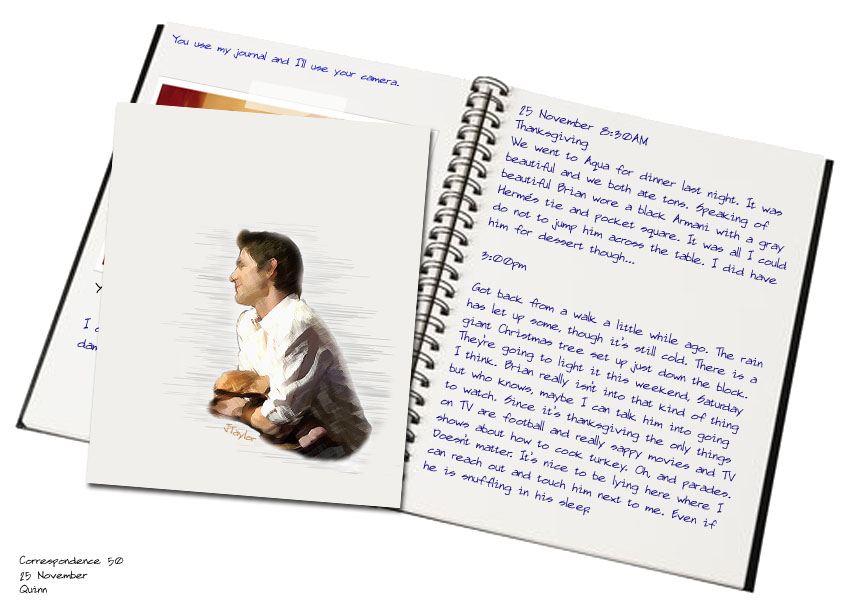 You use my journal and I'll use your camera.
Y
I
dam
J.Taylor
25 November 8:30AM
Thanksgiving
We went to Aqua for dinner last night. It was
beautiful and we both ate tons. Speaking of
beautiful Brian wore a black Armani with a gray
Hermés tie and pocket square. It was all I could
do not to jump him across the table. I did have
him for dessert though...
3:00pm
Got back from a walk a little while ago. The rain
has let up some, though it's still cold. There is a
giant Christmas tree set up just down the block.
They're going to light it this weekend, Saturday
I think. Brian really isn't into that kind of thing
but who knows, maybe I can talk him into going
to watch. Since it's thanksgiving the only things
on TV are football and really sappy movies and TV
shows about how to cook turkey. Oh, and parades.
Doesn't matter. It's nice to be lying here where I
can reach out and touch him next to me. Even if
he is snuffling in his sleep.
Correspondence 50
25 November
Quinn